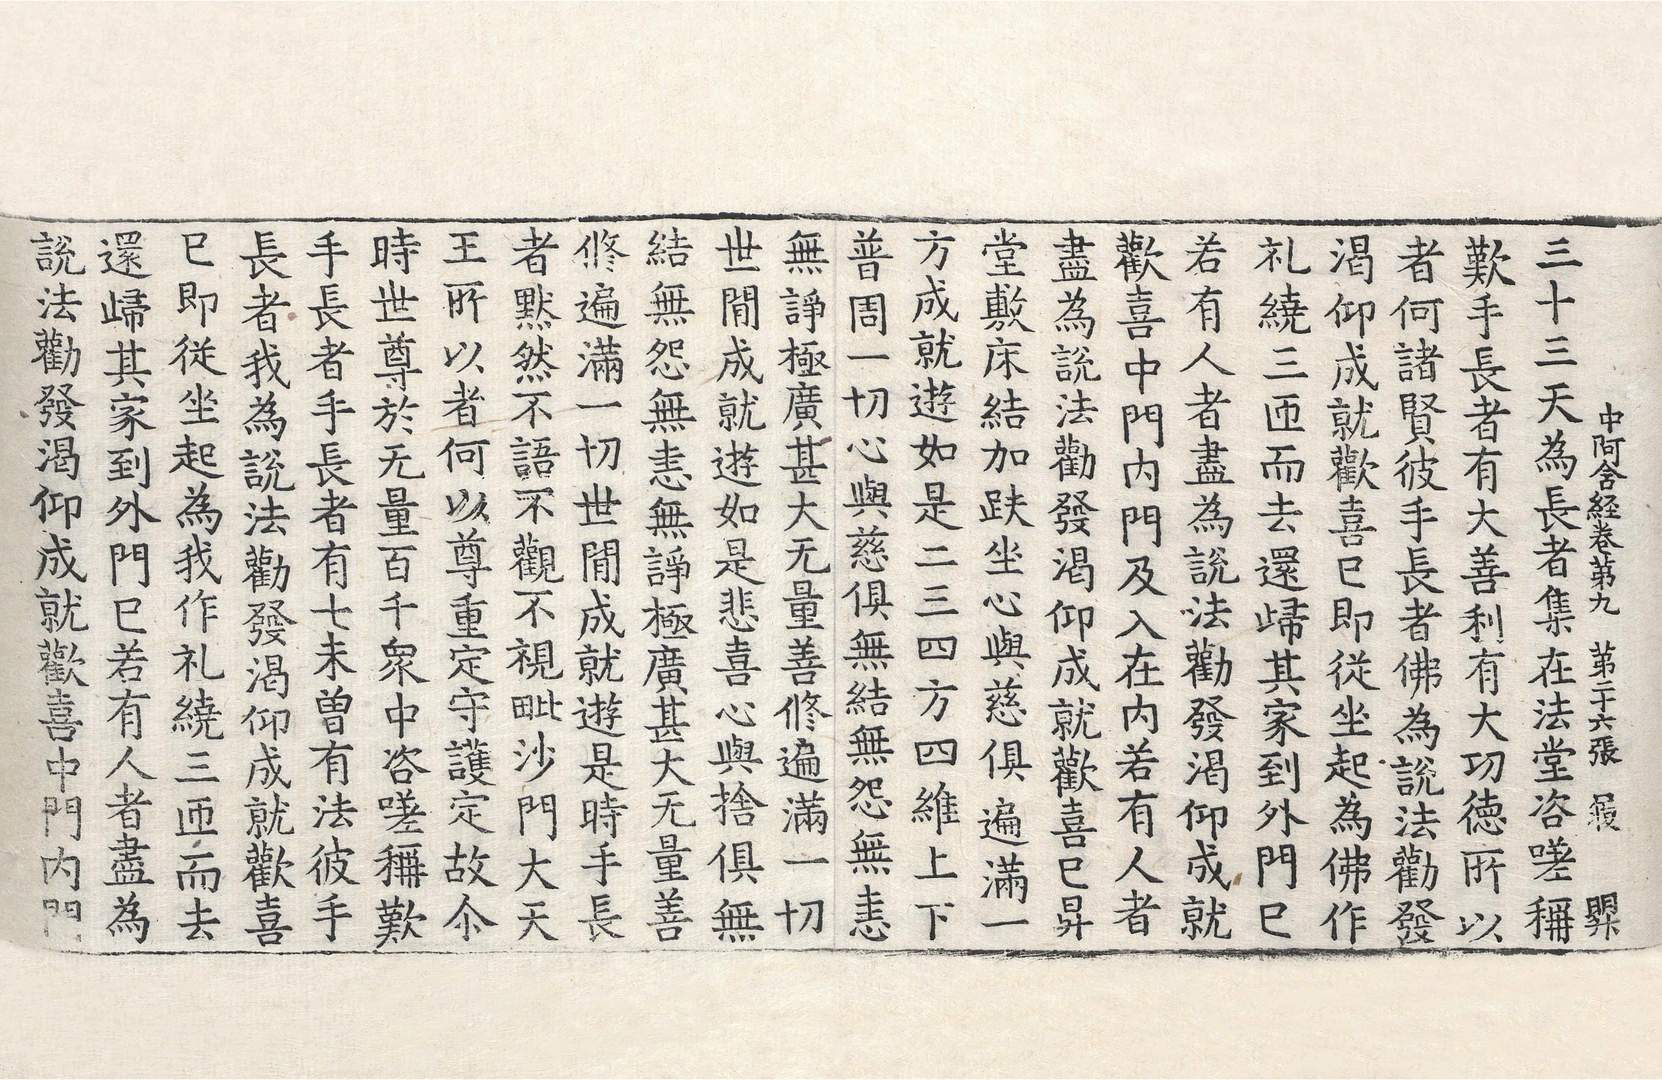 中阿含経卷第九　第二十六張　履
三十三天為長者集在法堂咨嗟稱
歎手長者有大善利有大功德所以
者何諸賢彼手長者佛為說法勸發
渴仰成就歡喜已即從坐起為佛作
礼繞三匝而去還歸其家到外門已
若有人者盡為說法勸發渴仰成就
歡喜中門内門及入在内若有人者
盡為說法勸發渴仰成就歡喜已昇
堂敷床結加趺坐心與慈俱遍滿一
方成就遊如是二三四方四維上下
普周一切心與慈俱無結無怨無恚
無諍極廣甚大无量善修遍滿一切
世閒成就遊如是悲喜心與捨俱無
結無怨無恚無諍極廣甚大无量善
修遍滿一切世閒成就遊是時手長
者默然不語不觀不視毗沙門大天
王所以者何以尊重定守護定故尒
時世尊於无量百千衆中咨嗟稱歎
手長者手長者有七未曾有法彼手
長者我為說法勸發渴仰成就歡喜
已即從坐起為我作礼繞三匝而去
還歸其家到外門已若有人者盡為
說法勸發渴仰成就歡喜中門内門